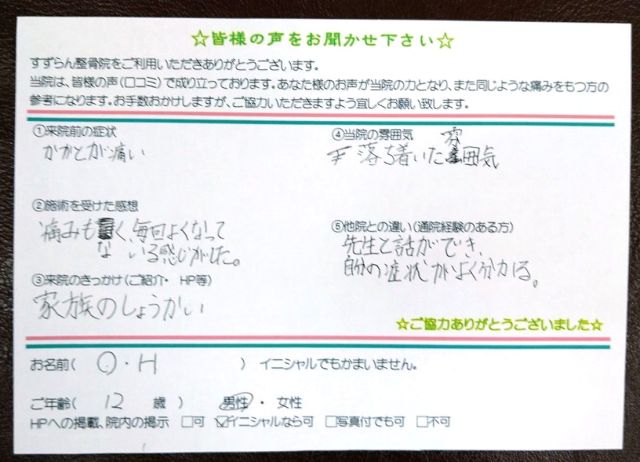 ☆皆様の声をお聞かせ下さい☆
すずらん整骨院をご利用いただきありがとうございます。
当院は、皆様の声(口コミ)で成り立っております。あなた様のお声が当院の力となり、また同じような痛みをもつ方の
参考になります。お手数おかけしますが、ご協力いただきますよう宜しくお願い致します。
①来院前の症状
かかとが痛い
②施術を受けた感想
痛みもなく、毎回よくなって
いる感じがした。
③来院のきっかけ(ご紹介・HP等)
家族のしょうかい
④当院の雰囲気
落ち着いた雰囲気
⑤他院との違い(通院経験のある方)
先生と話ができ、
自分の症状がよく分かる。
☆ご協力ありがとうございました☆
お名前( O・H ) イニシャルでもかまいません。
ご年齢( 12 歳 ) 男性・女性
HPへの掲載、院内の掲示 □可 ☑イニシャルなら可 □写真付でも可 □不可